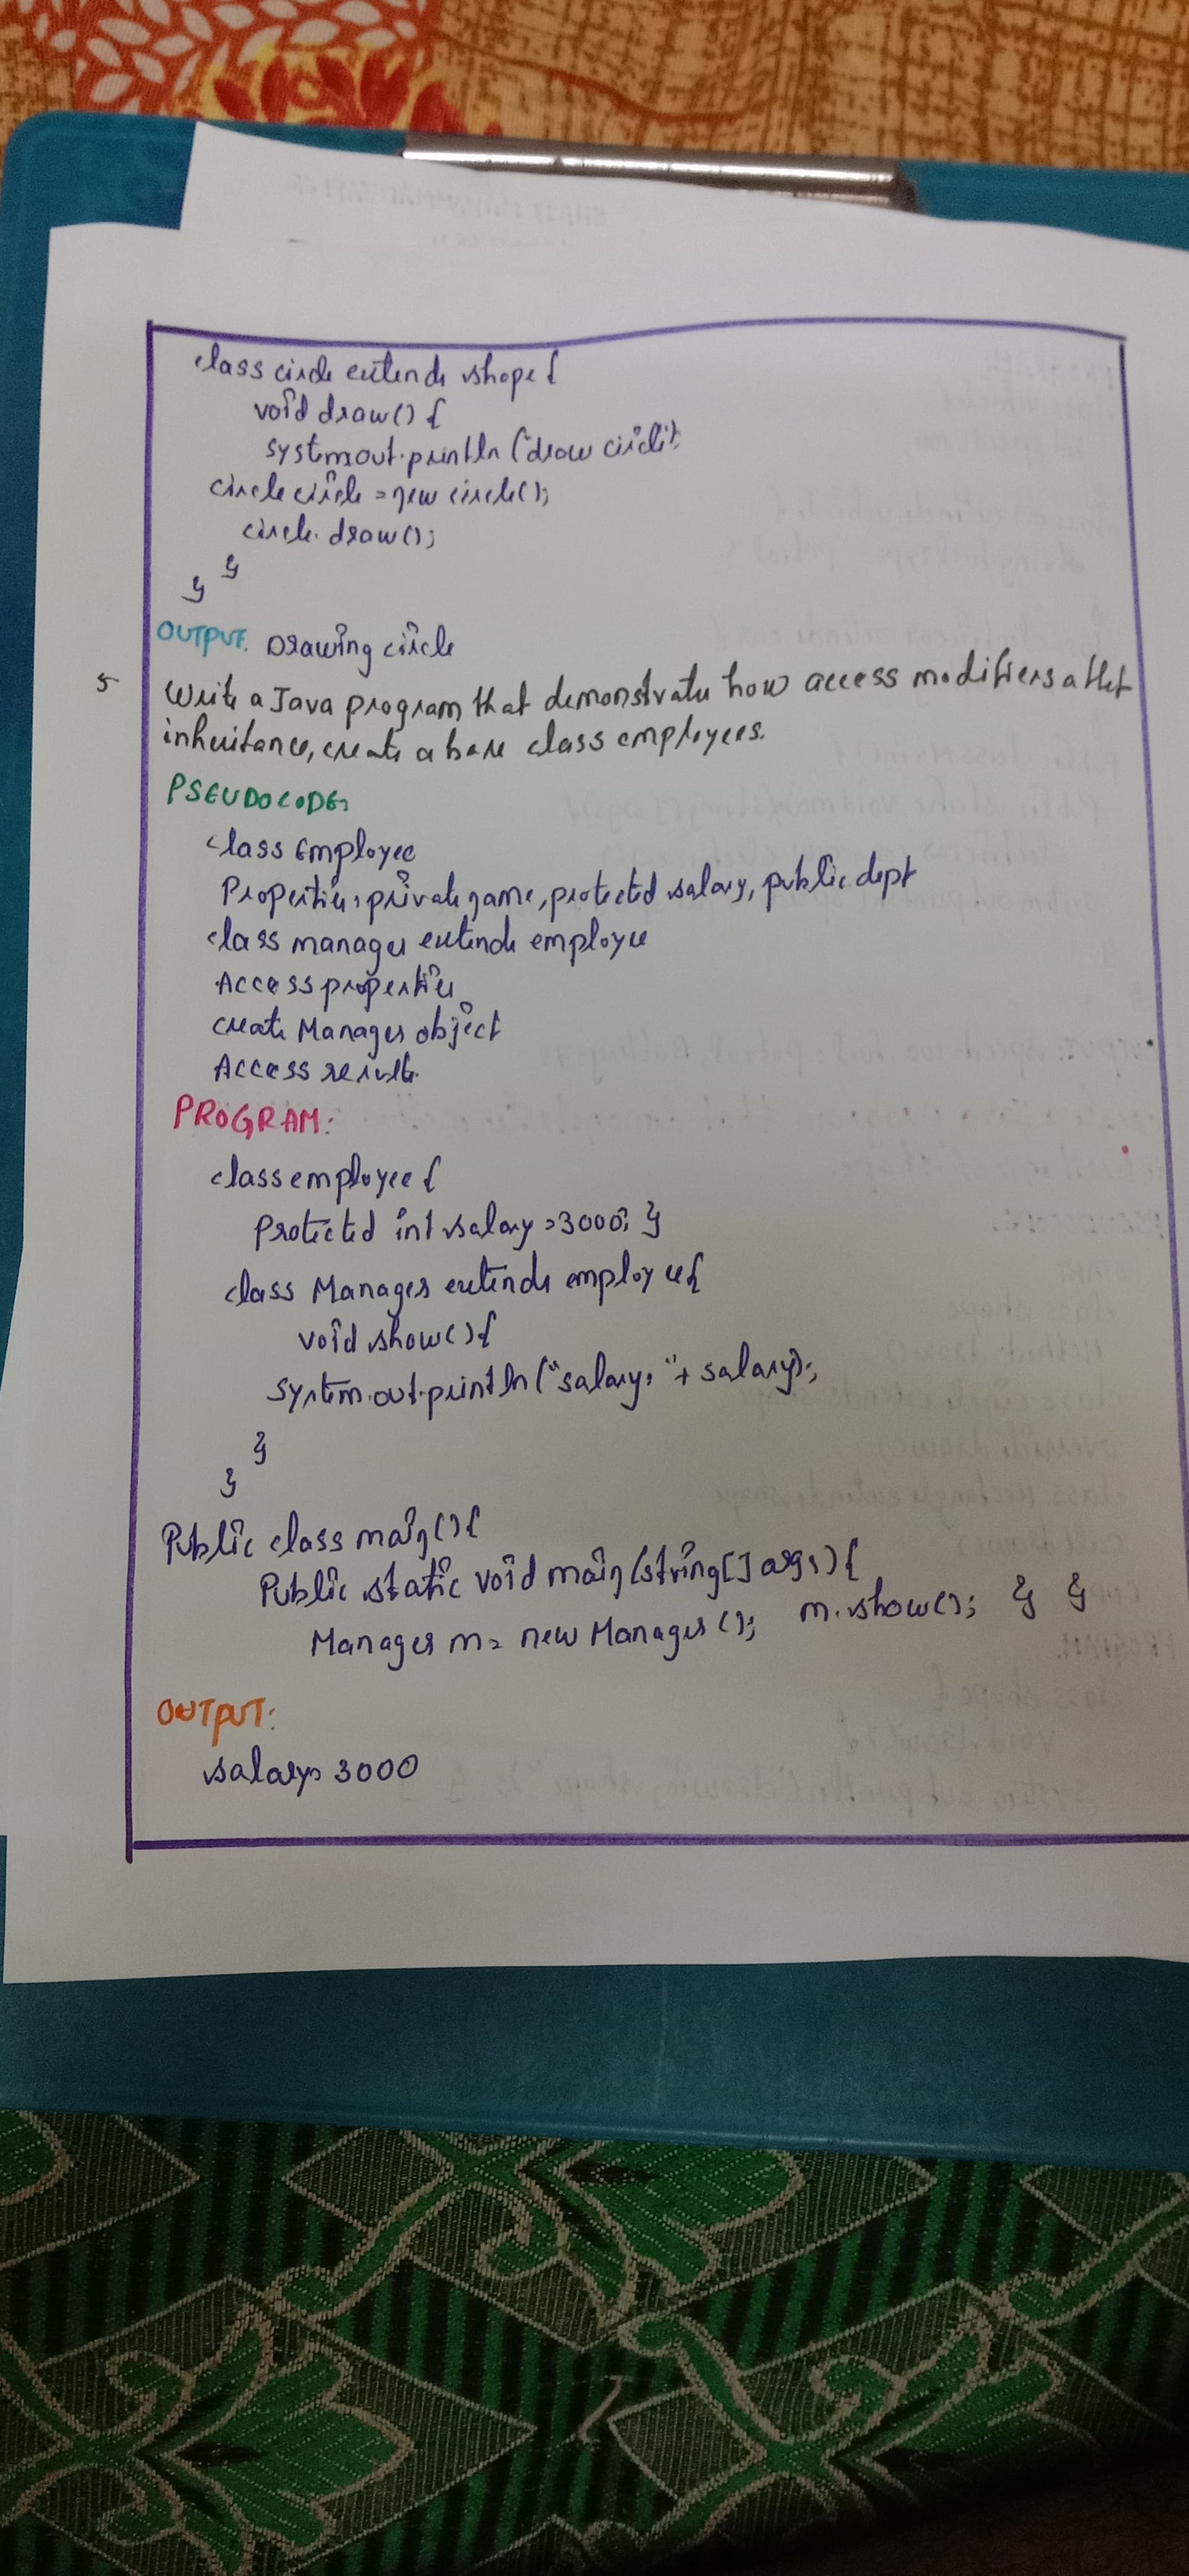 class circle extends shope {
void draw() {
system.out.println ("draw circle");
circle circle = new circle();
circle. draw();
}
}
OUTPUT: Drawing circle
5 Write a Java program that demonstrates how access modifiers affect
inheritance, create a base class employees.
PSEUDOCODE:
class Employee
Properties: private name, protected salary, public dept
class manager extends employee
Access properties
create Manager object
Access results
PROGRAM:
class employee {
Protected int salary = 3000; }
class Manager extends employee {
void show() {
system.out.println ("salary: " + salary);
}
}
Public class main() {
Public static void main (string[] args) {
Manager m = new Manager (); m.show(); } }
OUTPUT:
salary: 3000